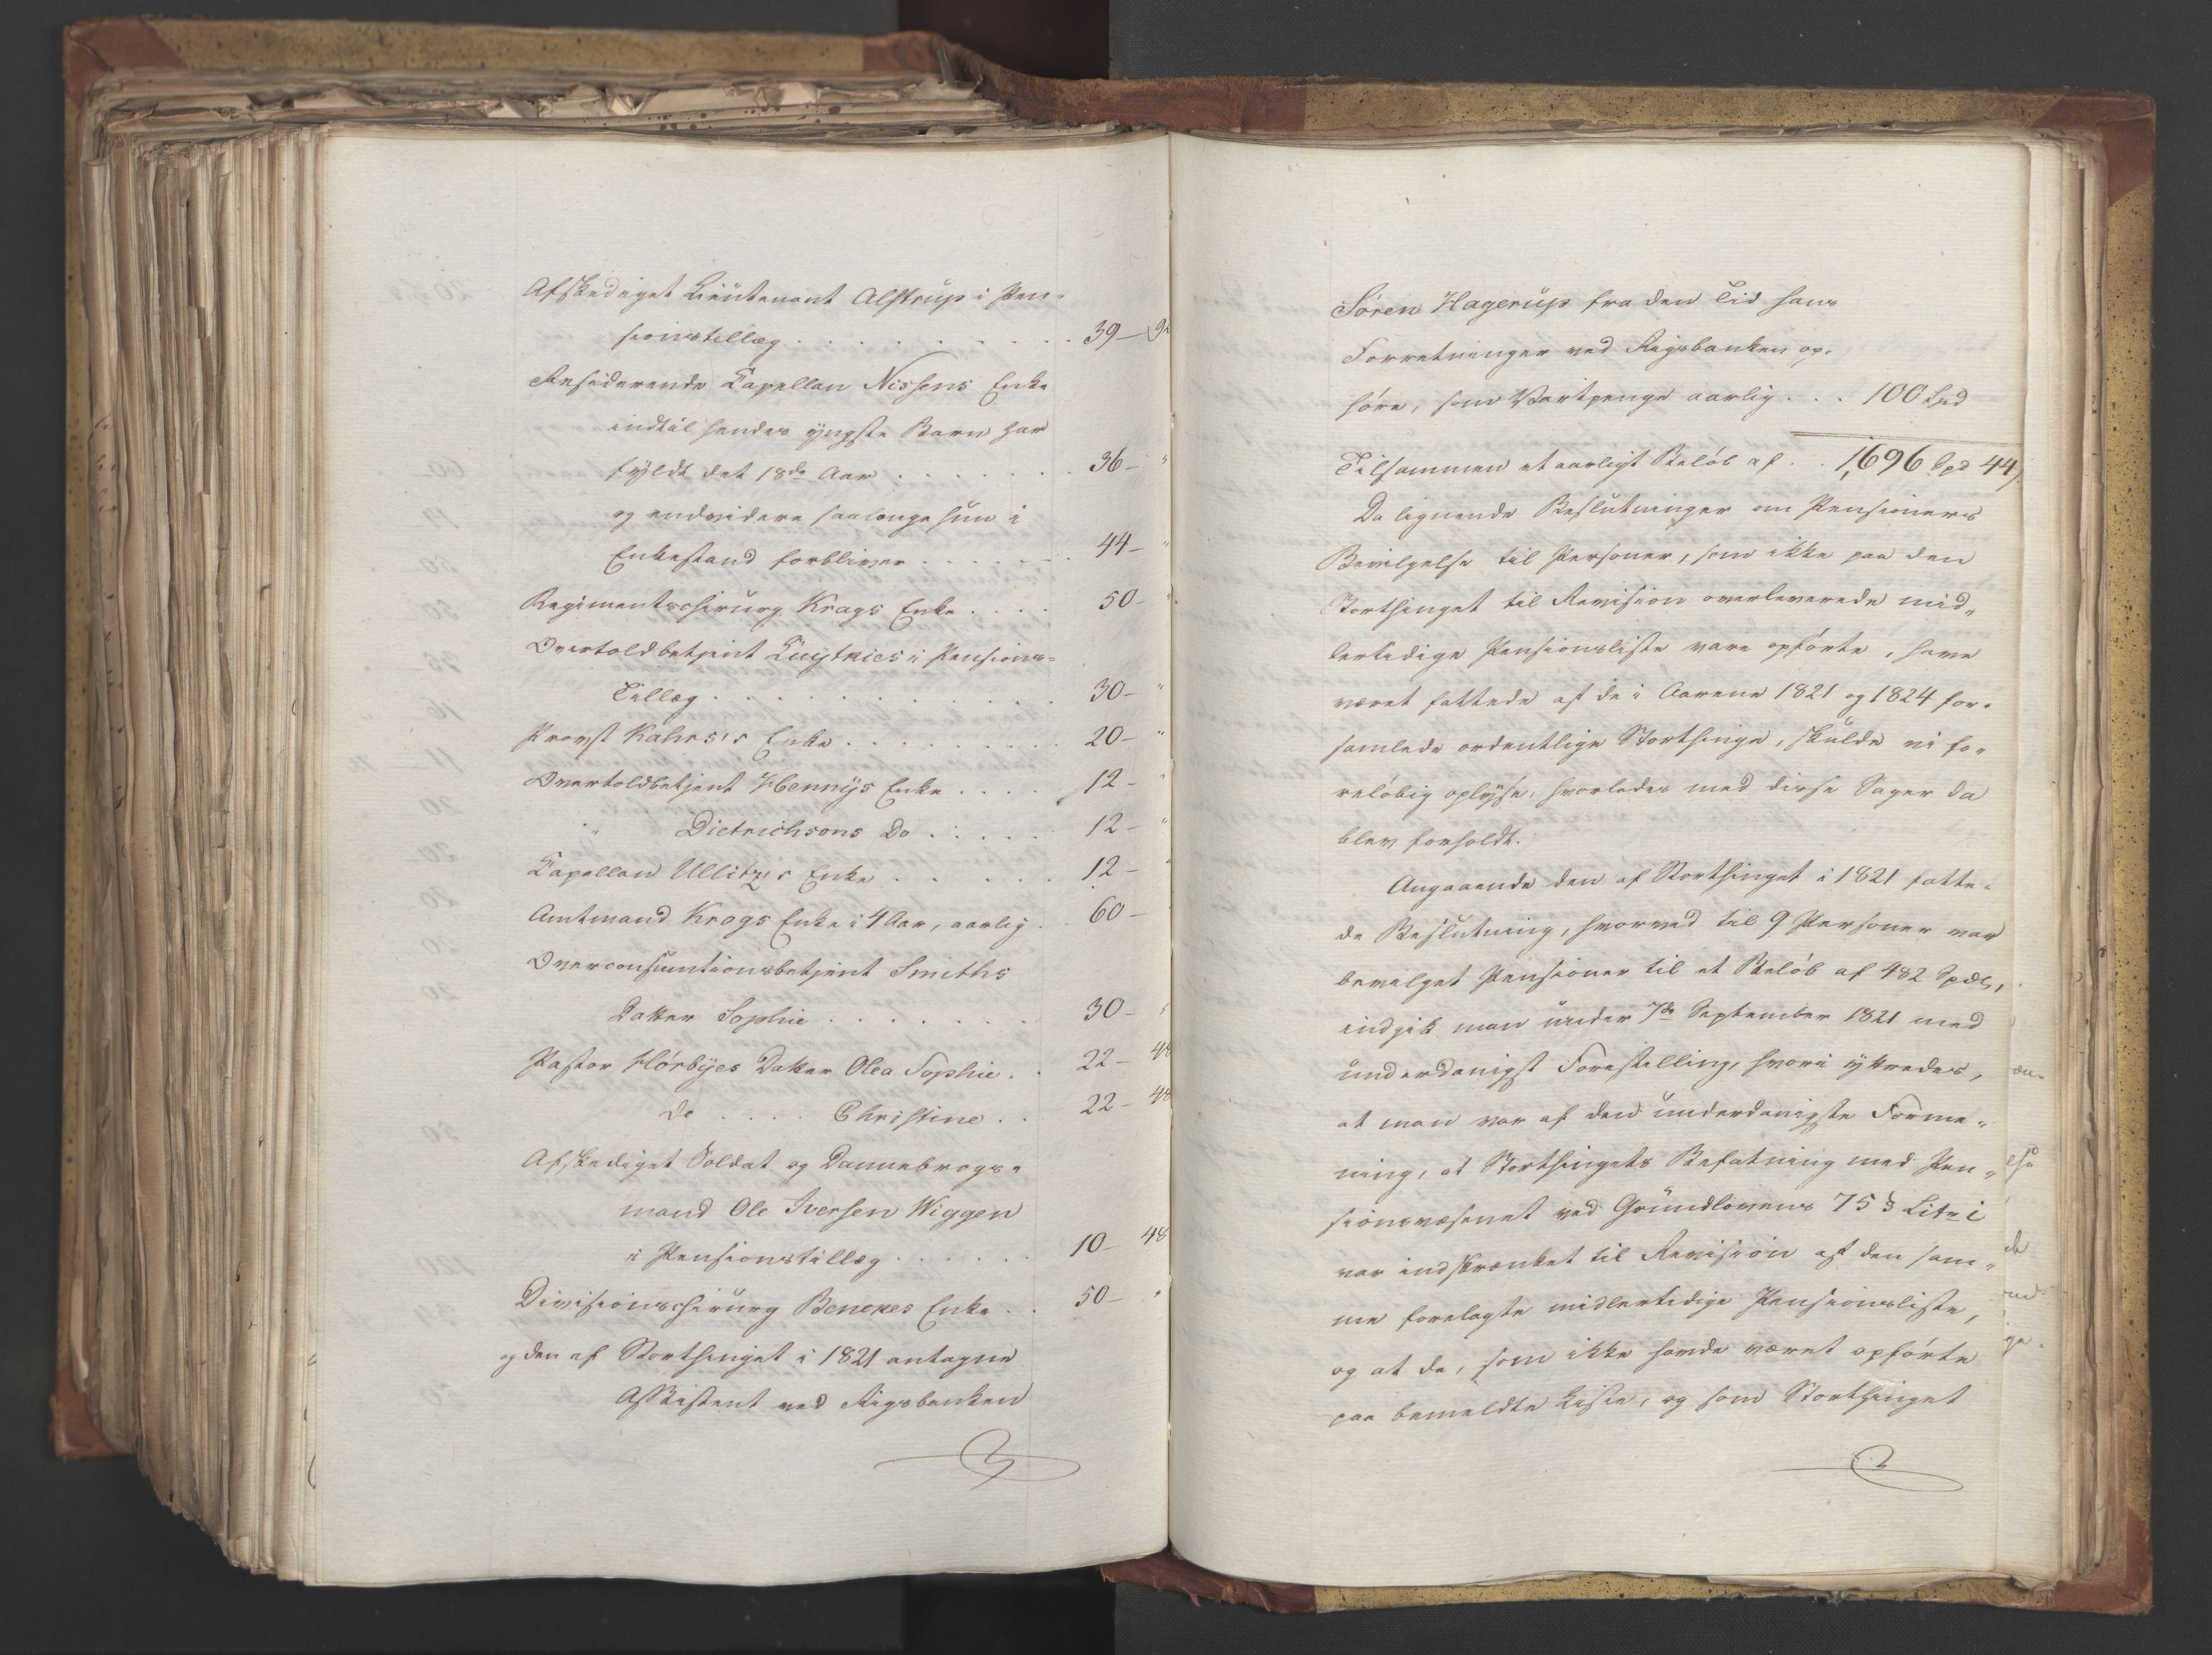 Afskediget Lieutenant Alstrup i Pen-
sionstillæg . . . . . . . . . . 39 - 92
Residerende Capellan Nissens Enke
indtil hendes yngste Barn har
fyldt det 18de Aar . . . . . . . 36 - "
og endvidere saalænge hun i
Enkestand forbliver . . . . . . . 44 - "
Regimentschirurg Krags Enke . . . . 50 - "
Overtoldbetjent i Pensions-
Tillæg . . . . . . . . . . . . 30 - "
Provst Kahrs's Enke . . . . . . . . . 20 - "
Overtoldbetjent Hennÿs Enke . . . . 12 - "
" Dietrichsons Do . . . . . 12 - "
Capellan Ullitz's Enke . . . . . . 12 -
Amtmand Krogs Enke i 4 Aar, aarlig . . 60 -
Overconsumtionsbetjent Smiths
Datter Sophie . . . . . . . 30 -
Pastor Hørbÿes Datter Olea Sophie . . 22 - 48
do . . . . Christine . . 22 - 48
Afskediget Soldat og Dannebrogs-
mand Ole Iversen Wiggen
i Pensionstillæg . . . . . . 10 - 48
Divisionschirurg Benekes Enke . . 50 - "
og den af Storthinget i 1821 antagne
Assistent ved Rigsbanken
Søren Hagerup fra den Tid hans
Forretninger ved Rigsbanken op-
høre, som Vartpenge aarlig . . . 100 Spd
Tilsammen et aarligt Beløb af . . 1,696 Spd 44 s.
Da lignende Beslutninger om Pensioners
Bevilgelse til Personer, som ikke paa den
Storthinget til Revision overleverede mid-
lertidige Pensionsliste vare opførte, have
været fattede af de i Aarene 1821 og 1824 for-
samlede ordentlige Storthinge, skulde vi fo-
reløbig oplyse, hvorledes med disse Sager da
blev forholdt.
Angaaende den af Storthinget i 1821 fatte-
de Beslutning, hvorved til 9 Personer var
bevilget Pensioner til et Beløb af 482 Spdlr,
indgik man under 7de September 1821 med
underdanigst Forestilling, hvori ÿttredes,
at man var af den underdanigste Forme-
ning, at Storthingets Befatning med Pen-
sionsvæsenet ved Grundlovens 75 § Litr i
var indskrænket til Revision af den sam-
me forelagte midlertidige Pensionsliste,
og at de, som ikke havde været opførte
paa bemeldte Liste, og som Storthinget